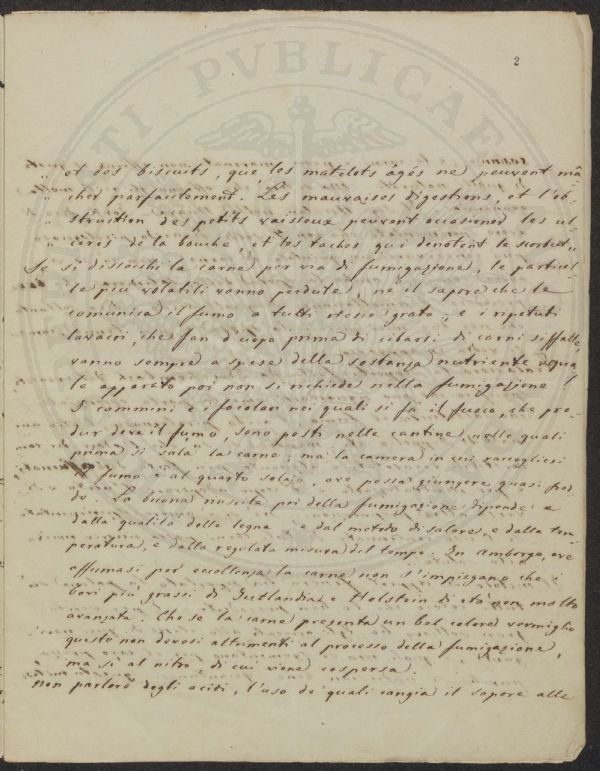 2
„ et des biscuits, que les matelets âgés ne peuvent mâ
„ cher parfaitement. Les mauvaises digestions, et l'ob
„ struition des petits vaisseux peuvent occasioner les ul
„ cerès de la bouche, et les taches qui denotent le scorbut„
Se si dissecchi la carne per via di fumigazione, le particel
le più volatili vanno perdute, nè il sapore che le
comunica il fumo a tutti riesce grato; e i ripetuti
lavacri, che fan d'uopo prima di cibarsi di carni siffatte,
vanno sempre a spese della sostanza nutriente. Qua
le apparato poi non si richiede nella fumigazione!
I cammini e i focolari nei quali si fa il fuoco, che pro-
dur deve il fumo, sono posti nelle cantine, nelle quali
prima si sala la carne; ma la camera in cui raccogliesi
il fumo è al quarto solajo, ove possa giungere quasi fred
do. La buona riuscita poi della fumigazione dipende e
dalla qualità delle legna, e dal metodo di salare, e dalla tem
peratura, e dalla regolata misura del tempo. In Amborgo, ove
affumasi per eccellenza la carne non s'impiegano che i
bovi più grassi di Jutlandia e Holstein di età non molto
avanzata. Che se la carne presenta un bel colore vermiglio
questo non devesi altrimenti al processo della fumigazione,
ma sì al nitro, di cui viene cospersa.
Non parlerò degli acidi, l'uso de' quali cangia il sapore alle